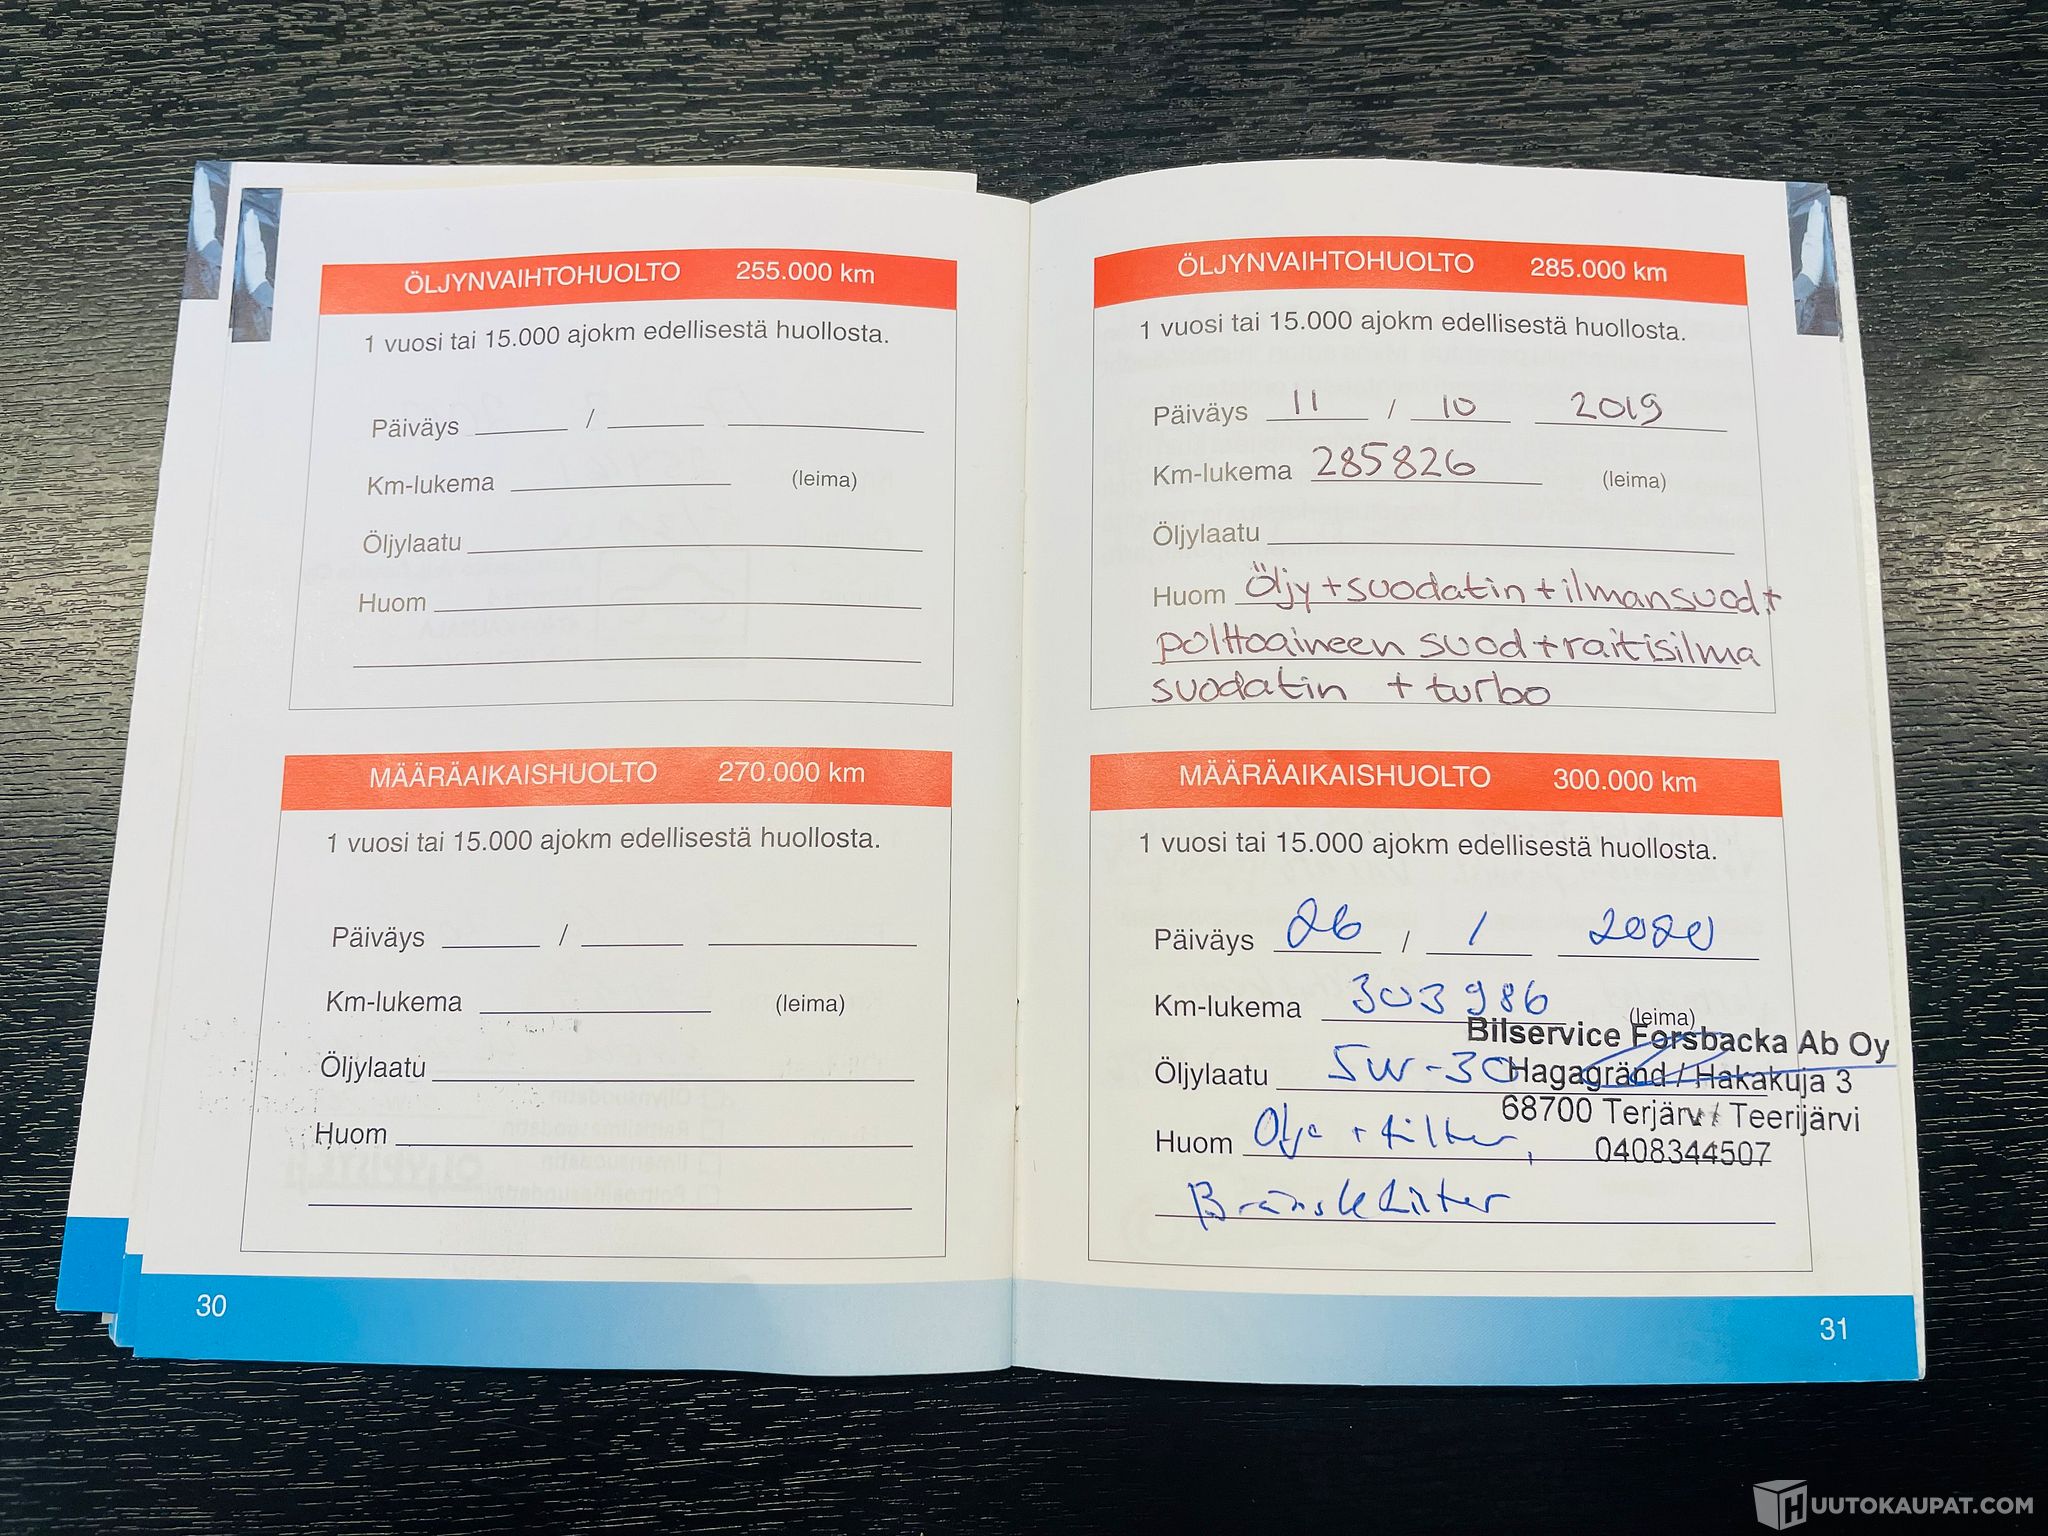 ÖLJYNVAIHTOHUOLTO 255.000 km
1 vuosi tai 15.000 ajokm edellisestä huollosta.
Päiväys /
Km-lukema (leima)
Öljylaatu
Huom
MÄÄRÄAIKAISHUOLTO 270.000 km
1 vuosi tai 15.000 ajokm edellisestä huollosta.
Päiväys /
Km-lukema (leima)
Öljylaatu
Huom
30
ÖLJYNVAIHTOHUOLTO 285.000 km
1 vuosi tai 15.000 ajokm edellisestä huollosta.
Päiväys 11 / 10 2019
Km-lukema 285826 (leima)
Öljylaatu
Huom Öljy + suodatin + ilmansuod +
polttoaineen suod + raitisilma
suodatin + turbo
MÄÄRÄAIKAISHUOLTO 300.000 km
1 vuosi tai 15.000 ajokm edellisestä huollosta.
Päiväys 26 / 1 2020
Km-lukema 303986 (leima)
Bilservice Forsbacka Ab Oy
Öljylaatu 5W-30 Hagagränd / Hakakuja 3
68700 Terjärv / Teerijärvi
Huom Olja + filter, 0408344507
Bränslefilter
31
HUUTOKAUPAT.COM